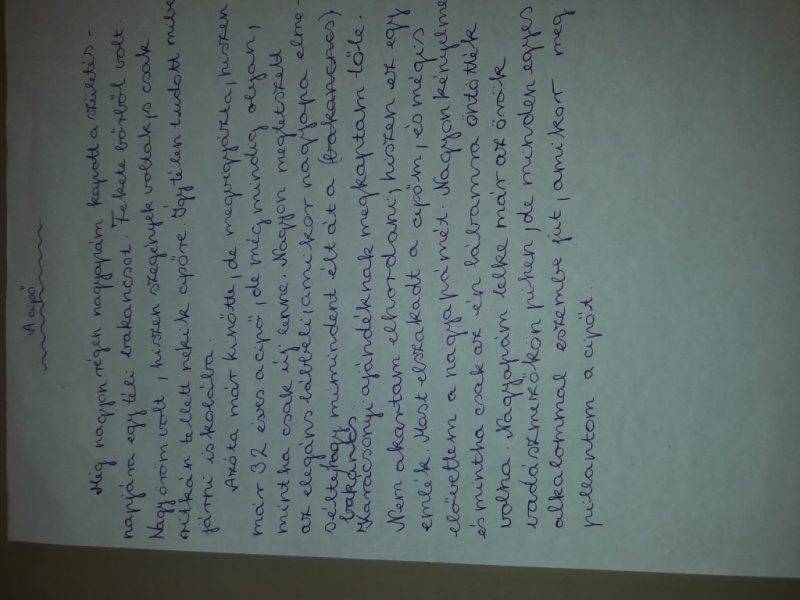 A cipő
Még nagyon régen nagyapám kapott a születés-
napjára egy téli bakancsot. Fekete bőrből volt.
Nagy öröm volt, hiszen szegények voltak, s csak
ritkán tellett nekik cipőre. Így télen tudott mibe
járni iskolába.
Azóta már kinőtte, de megvigyázta, hiszen
már 32 éves a cipő, de még mindig olyan,
mintha csak új lenne. Nagyon megtetszett
az elegáns lábbeli, amikor nagyapa elme-
sélte, hogy mi mindent élt át a (bakancs)
bakancs.
Karácsonyi ajándéknak megkaptam tőle.
Nem akartam elhordani, hiszen ez egy
emlék. Most elszakadt a cipőm, és mégis
elővettem a nagyapámét. Nagyon kényelme
és mintha csak az én lábamra öntötték
volna. Nagyapám lelke már az örök
vadászmezőkön pihen, de minden egyes
alkalommal eszembe jut, amikor meg
pillantom a cipőt.